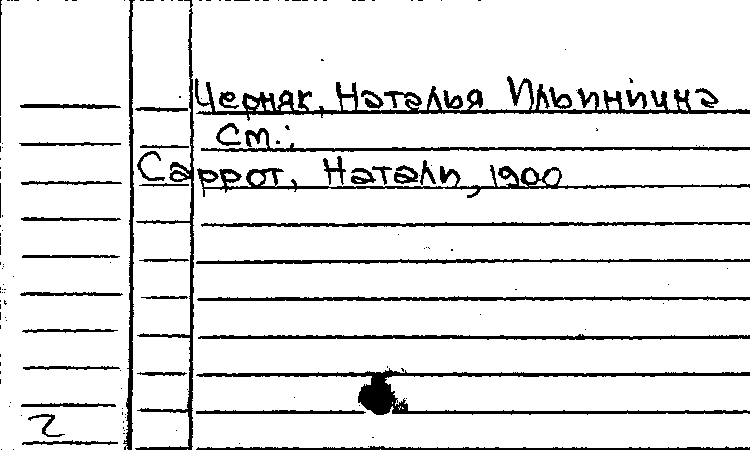 Черняк, Наталья Ильинична
См.:
Саррот, Натали, 1900
2